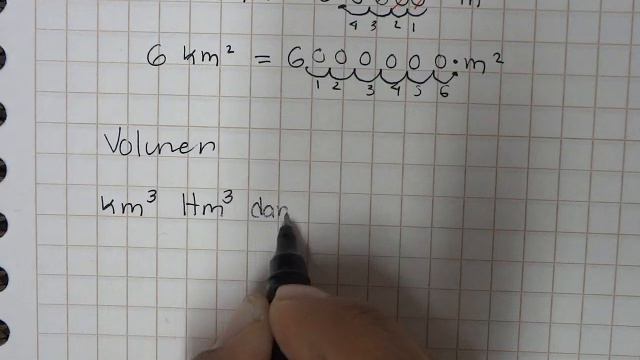 4 3 2 1
6 km² = 6000000.m²
1 2 3 4 5 6
Volumen
Km³ Hm³ dam